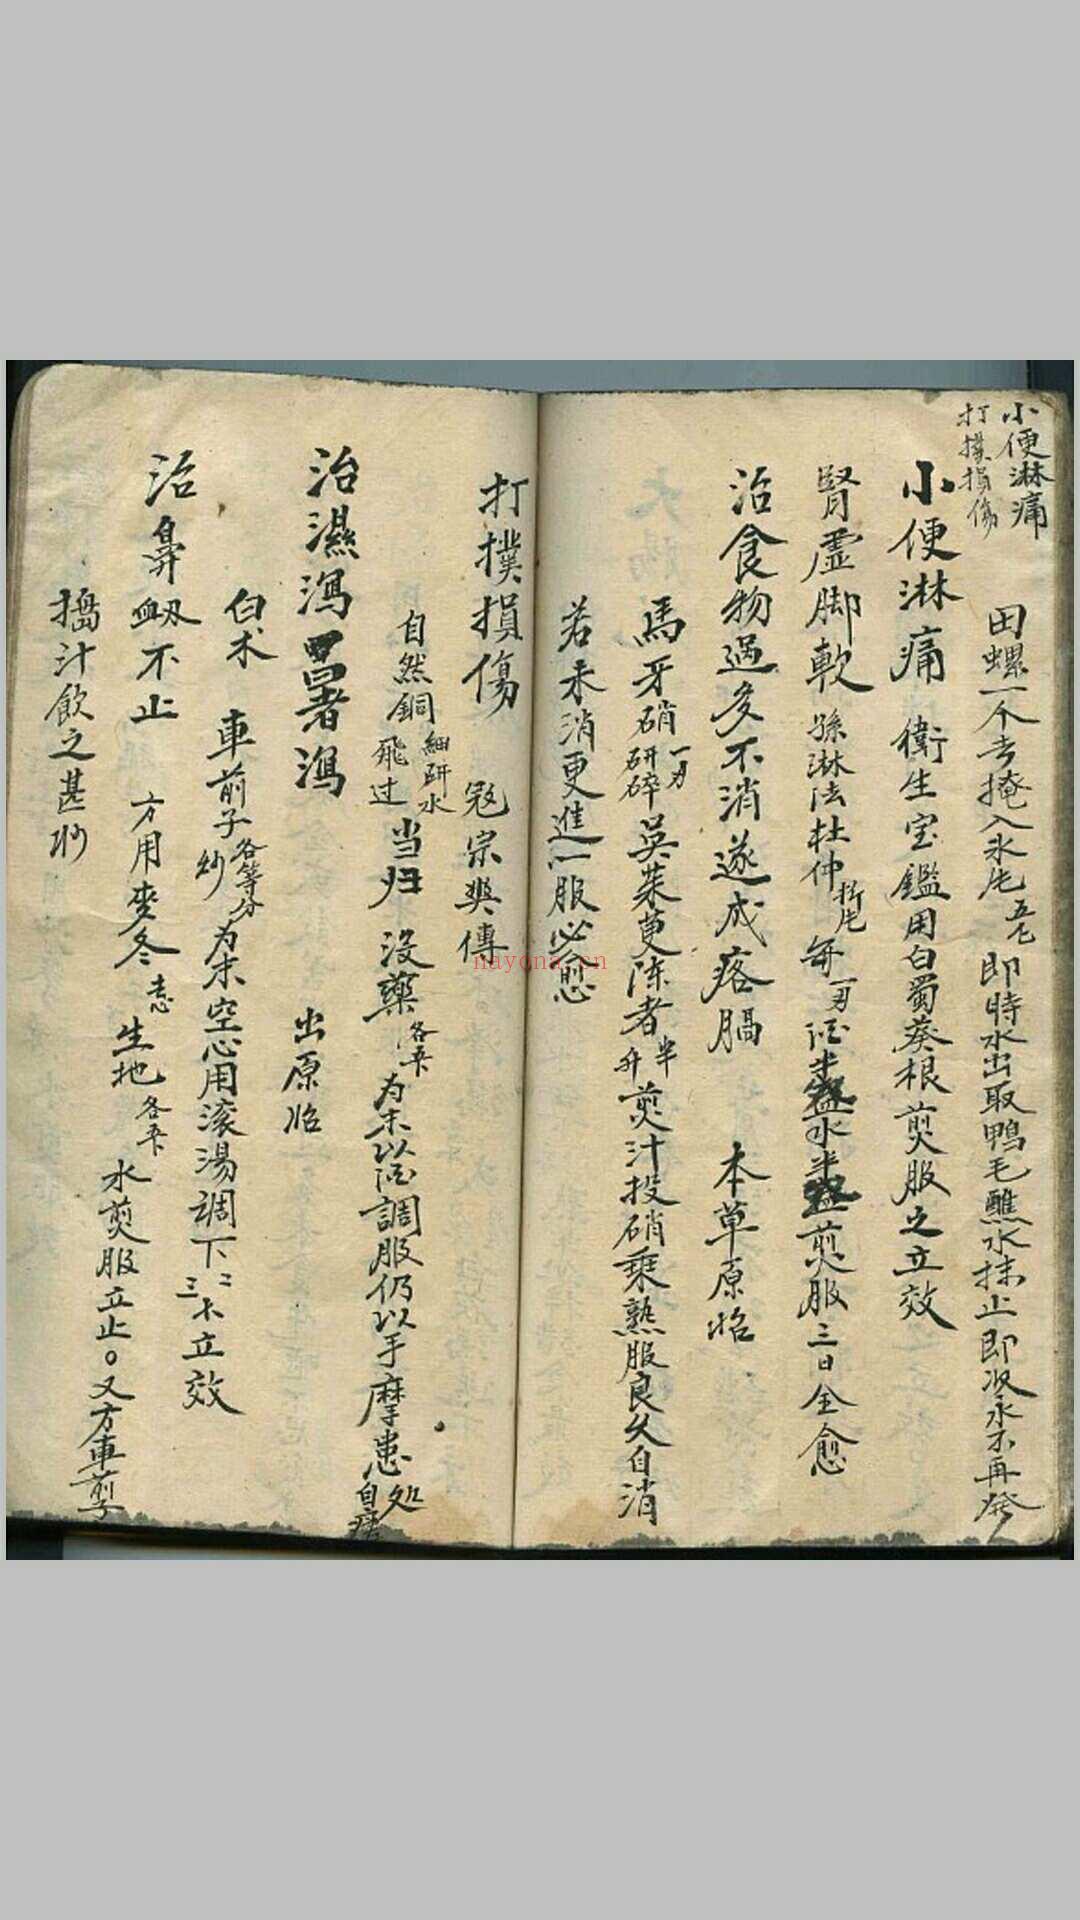 小便淋痛
打撲損傷
田螺一个去掩入氷片五七即時水出取鴨毛蘸水抹止即收永不再発
小便淋痛 衛生宝鑑用白蜀葵根煎服之立效
腎虛脚軟 孫淋法杜仲 每一刃酒半盞水半盞煎服三日全愈
治食物過多不消遂成痞膈 本草原始
馬牙硝一刃研碎吳茱萸陈者半升煎汁投硝乘熟服良久自消
若未消更進一服必愈
打撲損傷 宼宗奭傳
自然銅細研水飛过当归 没藥各 为末以酒調服仍以手摩患处自痊
治濕瀉暑瀉 出原始
白术 車前子炒各等分为末空心用滚湯調下二三 立效
治鼻衂不止 方用麥冬去心生地各 水煎服立止。又方車前子
搗汁飲之甚妙
nayona.cn